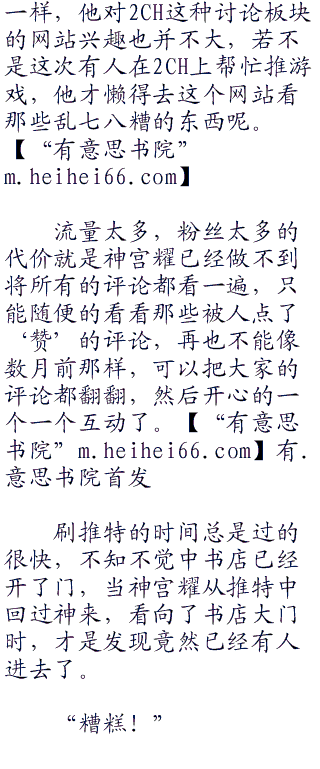 一样，他对2CH这种讨论板块
的网站兴趣也并不大，若不
是这次有人在2CH上帮忙推游
戏，他才懒得去这个网站看
那些乱七八糟的东西呢。
【“有意思书院”
m.heihei66.com】
流量太多，粉丝太多的
代价就是神宫耀已经做不到
将所有的评论都看一遍，只
能随便的看看那些被人点了
‘赞’的评论，再也不能像
数月前那样，可以把大家的
评论都翻翻，然后开心的一
个一个互动了。【“有意思
书院”m.heihei66.com】有.
意思书院首发
刷推特的时间总是过的
很快，不知不觉中书店已经
开了门，当神宫耀从推特中
回过神来，看向了书店大门
时，才是发现竟然已经有人
进去了。
“糟糕！”